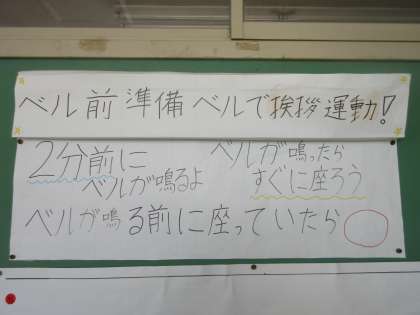 ベル前準備 ベルで挨拶運動!
2分前に
ベルが鳴るよ
ベルが鳴ったら
すぐに座ろう
ベルが鳴る前に座っていたら